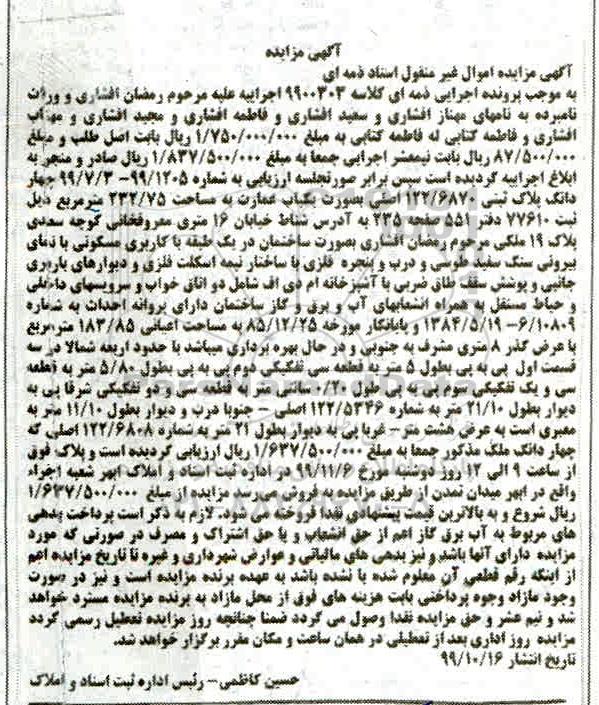 آگهی مزایده
آگهی مزایده اموال غیر منقول اسناد ذمه ای
به موجب پرونده اجرایی ذمه ای کلاسه ۹۹۰۰۳۰۳ اجرائیه علیه مرحوم رمضان افشاری و وراث
نامبرده به نامهای مهناز افشاری و سعید افشاری و فاطمه افشاری و مجید افشاری و مهتاب
افشاری و فاطمه کتابی له فاطمه کتابی به مبلغ ۱/۷۵۰/۰۰۰/۰۰۰ ریال بابت اصل طلب و مبلغ
۸۷/۵۰۰/۰۰۰ ریال بابت نیمعشر اجرایی جمعا به مبلغ ۱/۸۳۷/۵۰۰/۰۰۰ ریال صادر و منجر به
ابلاغ اجراییه گردیده است سپس برابر صورتجلسه ارزیابی به شماره ۹۹/۱۲۰۵- ۹۹/۷/۳ چهار
دانگ پلاک ثبتی ۱۲۲/۶۸۷۰ اصلی بصورت یکباب عمارت به مساحت ۲۳۲/۷۵ مترمربع ذیل
ثبت ۷۷۶۱۰ دفتر ۵۵۱ صفحه ۲۳۵ به آدرس شناط خیابان ۱۶ متری معروفخانی کوچه سعدی
پلاک ۱۹ ملکی مرحوم رمضان افشاری بصورت ساختمان در یک طبقه با کاربری مسکونی با نمای
بیرونی سنگ سفید طوسی و درب و پنجره فلزی با ساختار نیمه اسکلت فلزی و دیوارهای باربری
جانبی و پوشش سقف طاق ضربی با آشپزخانه ام دی اف شامل دو اتاق خواب و سرویسهای داخلی
و حیاط مستقل به همراه انشعابهای آب و برق و گاز ساختمان دارای پروانه احداث به شماره
۶/۱۰۸۰۹- ۱۳۸۴/۵/۱۹ و پایانکار مورخه ۸۵/۱۲/۲۵ به مساحت اعیانی ۱۸۳/۸۵ مترمربع
با عرض گذر ۸ متری مشرف به جنوبی و در حال بهره برداری میباشد با حدود اربعه شمالا در سه
قسمت اول پی به پی بطول ۵ متر به قطعه سی تفکیکی دوم پی به پی بطول ۵/۸۰ متر به قطعه
سی و یک تفکیکی سوم پی به پی طول ۰/۲۰ سانتی متر به قطعه سی و دو تفکیکی شرقا پی به
دیوار بطول ۲۱/۱۰ متر به شماره ۱۲۲/۵۳۴۶ اصلی - جنوبا درب و دیوار بطول ۱۱/۱۰ متر به
معبری است به عرض هشت متر- غربا پی به دیوار بطول ۲۱ متر به شماره ۱۲۲/۶۸۰۸ اصلی که
چهار دانگ ملک مذکور جمعا به مبلغ ۱/۶۳۷/۵۰۰/۰۰۰ ریال ارزیابی گردیده است و پلاک فوق
از ساعت ۹ الی ۱۲ روز دوشنبه مورخ ۹۹/۱۱/۶ در اداره ثبت اسناد و املاک ابهر شعبه اجراء
واقع در ابهر میدان تمدن از طریق مزایده به فروش می‌رسد مزایده از مبلغ ۱/۶۳۷/۵۰۰/۰۰۰
ریال شروع و به بالاترین قیمت پیشنهادی نقدا فروخته می شود. لازم به ذکر است پرداخت بدهی
های مربوط به آب برق گاز اعم از حق انشعاب و یا حق اشتراک و مصرف در صورتی که مورد
مزایده دارای آنها باشد و نیز بدهی های مالیاتی و عوارض شهرداری و غیره تا تاریخ مزایده اعم
از اینکه رقم قطعی آن معلوم شده یا نشده باشد به عهده برنده مزایده است و نیز در صورت
وجود مازاد وجوه پرداختی بابت هزینه های فوق از محل مازاد به برنده مزایده مسترد خواهد
شد و نیم عشر و حق مزایده نقدا وصول می گردد ضمنا چنانچه روز مزایده تعطیل رسمی گردد
مزایده روز اداری بعد از تعطیلی در همان ساعت و مکان مقرر برگزار خواهد شد.
تاریخ انتشار ۹۹/۱۰/۱۶
حسین کاظمی- رئیس اداره ثبت اسناد و املاک